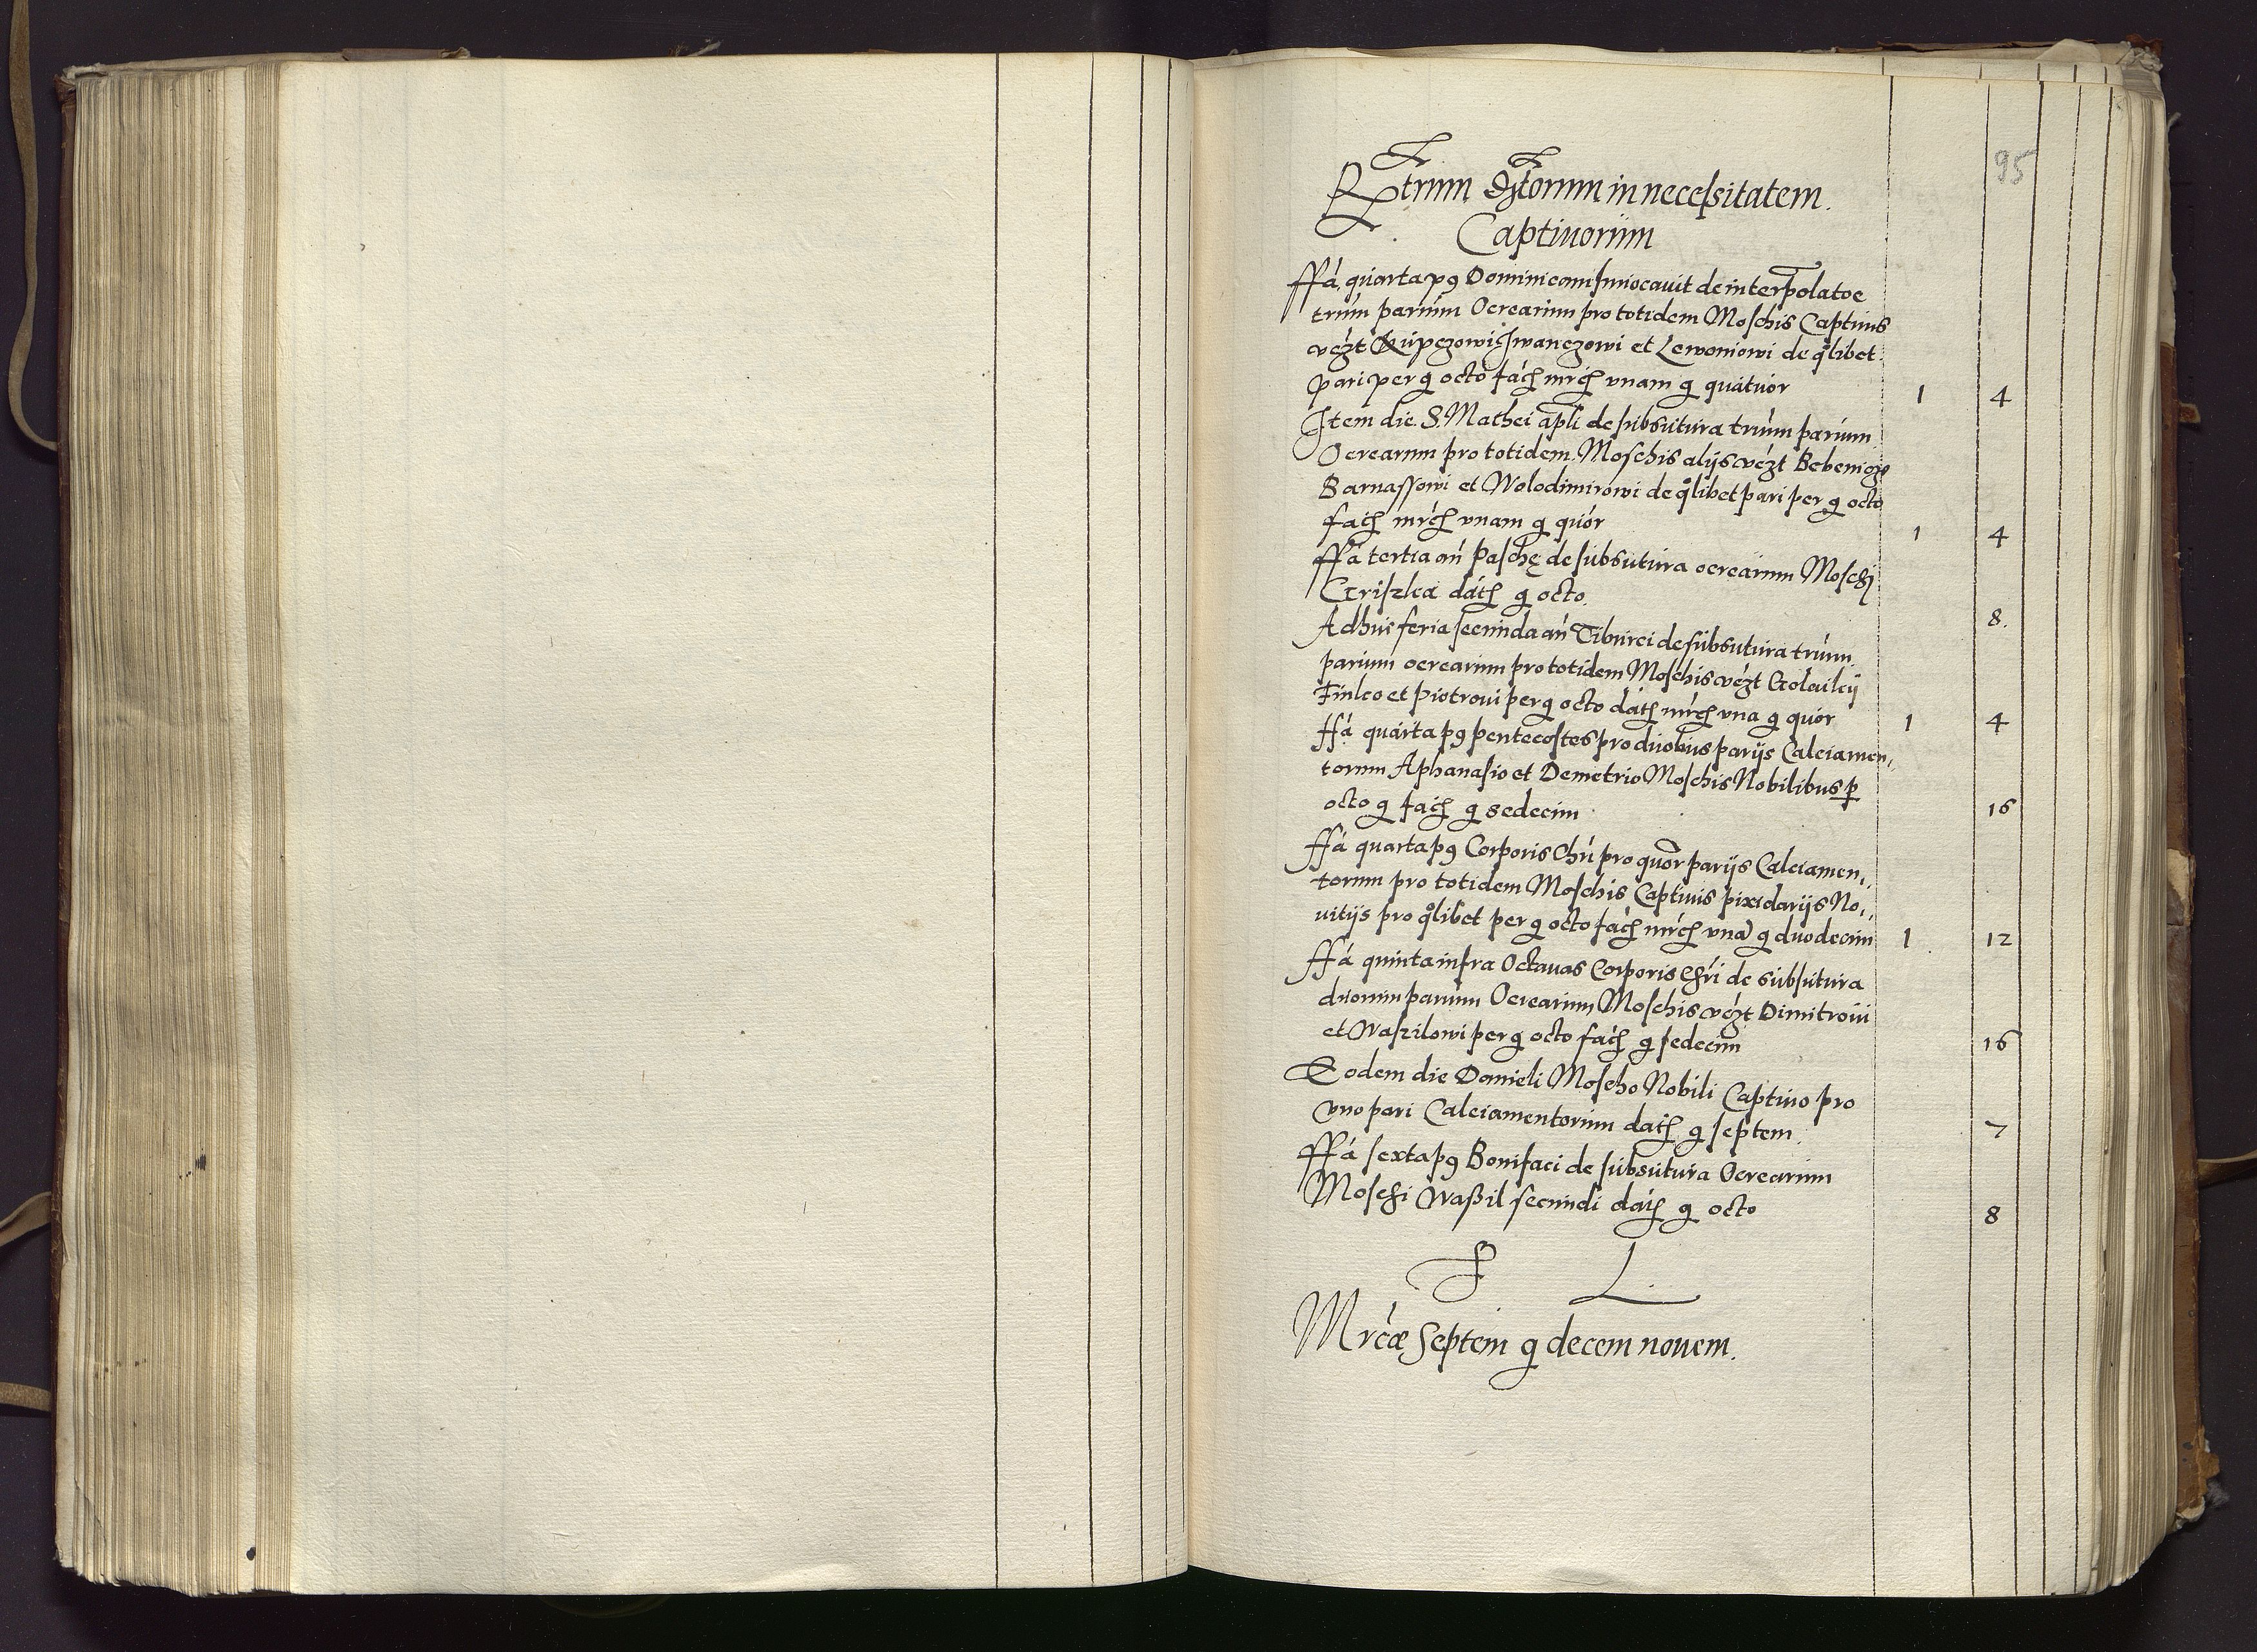 95
Rtrum Extorum in necessitatem
Captiuorum
ffá quarta pꝰ Dominicam Inuocauit de interpolatoe
trium parium Ocrearum pro totidem Moschis Captiuis
vezt Kupczowi Iwanczowi et Lewoniowi de qlibet
pari per g octo fac mrc vnam g quatuor 1 4
Item die S. Mathei apli de subsutura trium parium
Ocrearum pro totidem Moschis alijs vezt
Barnassowi et Wolodimirowi de qlibet pari per g octo
fac mrc vnam g quor 1 4
ffá tertia an Paschę de subsutura ocrearum Moschi
Griszka dat g octo 8.
Adhuc feria secunda an Tiburci de subsutura trium
parium ocrearum pro totidem Moschis vezt
et Piotrowi per g octo dat mrc vna g quor 1 4
ffá quarta pꝰ pentecostes pro duobus parijs Calciamen,,
torum Aphanasio et Demetrio Moschis Nobilibus p
octo g fac g sedecim 16
ffá quarta pꝰ Corporis Chri pro quor parijs Calciamen,,
torum pro totidem Moschis Captiuis pixidarijs No,,
uitijs pro qlibet per g octo fac mrc vna g duodecim 1 12
ffá quinta infra Octauas Corporis Chri de subsutura
duorum parium Ocrearum Moschis vezt Dimitroui
et Waszilowi per g octo fac g sedecim 16
Eodem die Danieli Moscho Nobili Captiuo pro
vno pari Calciamentorum dat g septem 7
ffá sexta pꝰ Bonifaci de subsutura Ocrearum
Moschi Waßil secundi dat g octo 8
Mrcæ septem g decem nouem.